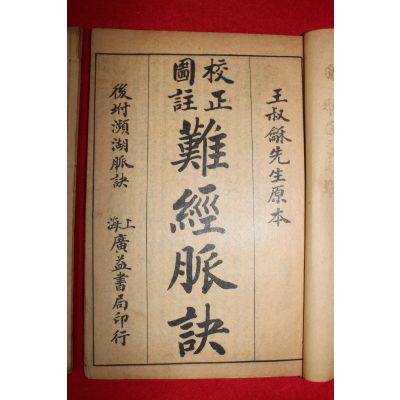 王叔龢先生原本
校正圖註
難經脈訣
後坿瀕湖脈訣
上海廣益書局印行